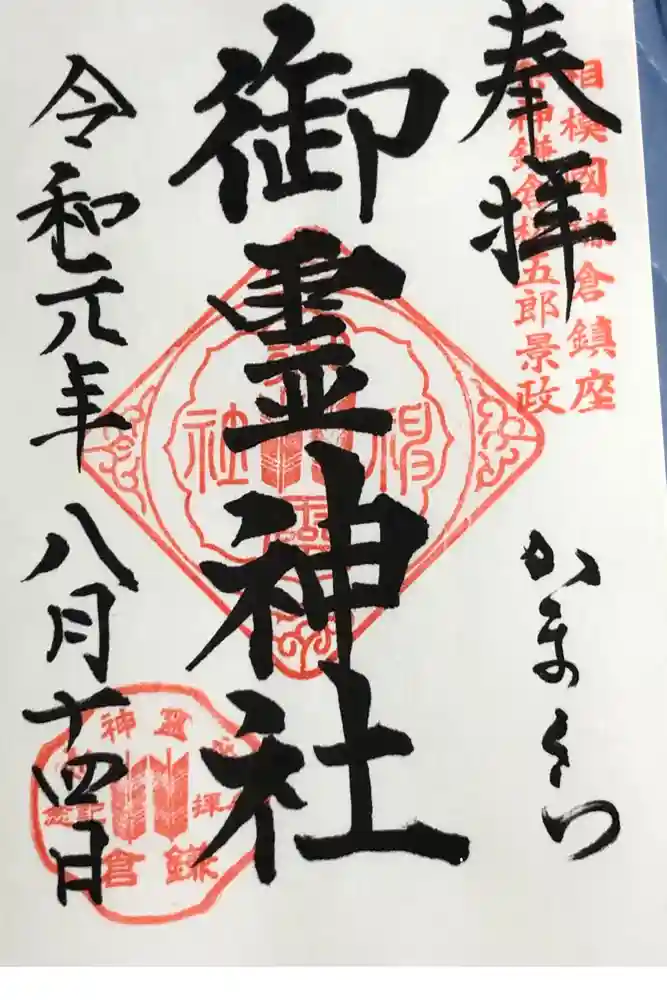 相模國鎌倉鎮座
神鎌倉権五郎景政
奉拝
かまくら
御霊神社
令和元年八月十四日
神社
鎌倉